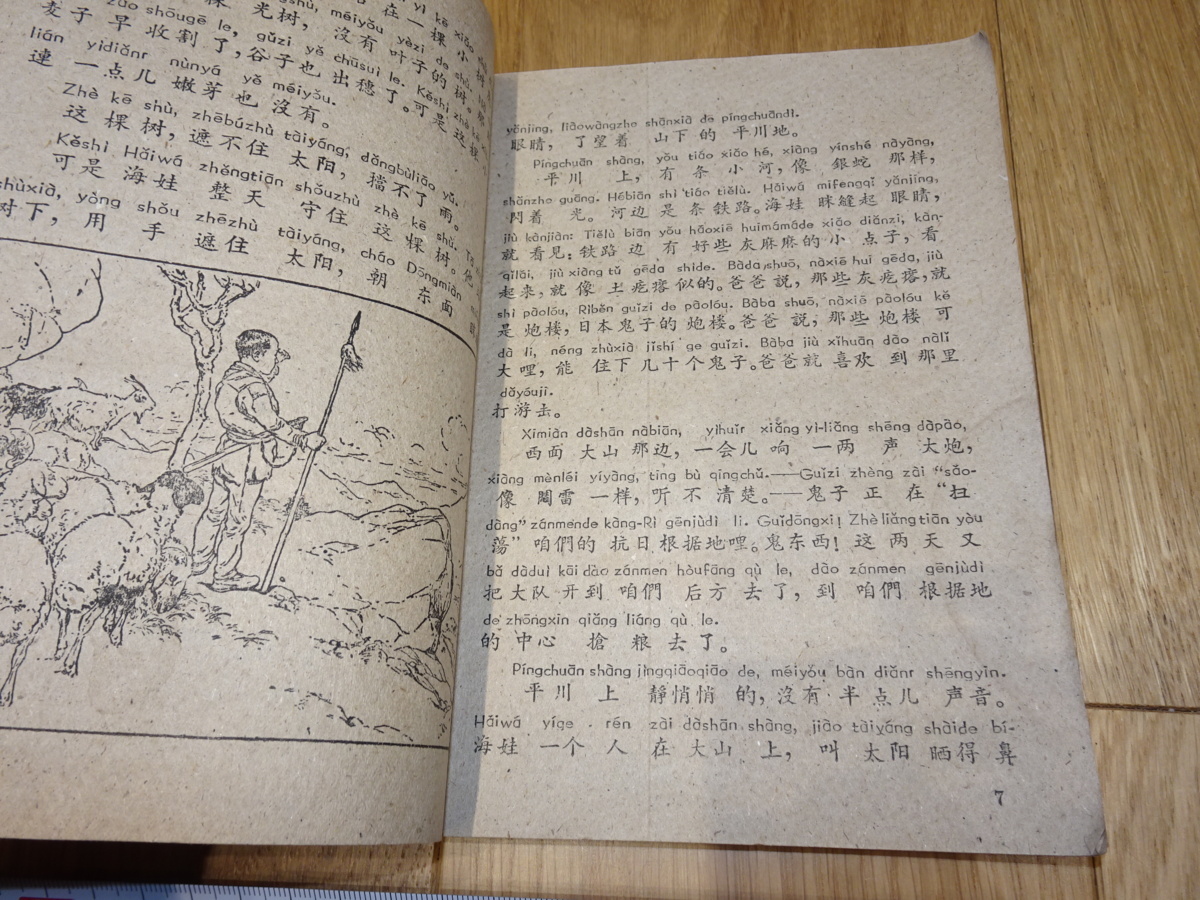 zǎo shōugē le, gǔzi yě chūsuì le. Kěshì zhè kē
麦子 早 收割 了,谷子也 出穗 了。可是 这 棵
lián yìdiǎnr nùnyá yě méiyǒu.
連 一点儿 嫩芽 也 沒有。
Zhè kē shù, zhēbúzhù tàiyáng, dǎngbùliǎo yǔ.
这 棵 树, 遮不住 太阳, 擋不了 雨。
Kěshì Hǎiwá zhěngtiān shǒuzhù zhè kē shù. Tā
可是 海娃 整天 守住 这 棵 树。他
shùxià, yòng shǒu zhēzhù tàiyáng, cháo Dōngmiàn
树下, 用 手 遮住 太阳, 朝 东面
yǎnjing, liàowàngzhe shānxià de píngchuāndì.
眼睛, 了望着 山下 的 平川地。
Píngchuān shàng, yǒu tiáo xiǎo hé, xiàng yínshé nàyàng,
平川 上, 有 条 小 河, 像 銀蛇 那样,
shǎnzhe guāng. Hébiān shì tiáo tiělù. Hǎiwá mīfengqǐ yǎnjing,
閃着 光。河边 是 条 铁路。海娃 眯縫起 眼睛,
jiù kànjiàn: Tiělù biān yǒu hǎoxiē huīmámáde xiǎo diǎnzi, kàn-
就 看见: 铁路 边 有 好些 灰麻麻的 小 点子, 看
qǐlái, jiù xiàng tǔ gēda shìde. Bàba shuō, nàxiē huī gēda, jiù
起来, 就 像 土 疙瘩 似的。爸爸 説, 那些 灰 疙瘩, 就
shì pàolóu, Rìběn guǐzi de pàolóu. Bàba shuō, nàxiē pàolóu kě
是 炮楼, 日本 鬼子 的 炮楼。爸爸 説, 那些 炮楼 可
dà li, néng zhùxià jǐshí ge guǐzi. Bàba jiù xǐhuān dào nàlǐ
大 哩, 能 住下 几十 个 鬼子。爸爸 就 喜欢 到 那里
dǎyóujī.
打游击。
Xīmiàn dàshān nàbiān, yìhuǐr xiǎng yì-liǎng shēng dàpào,
西面 大山 那边, 一会儿 响 一两 声 大炮,
xiàng mènléi yíyàng, tīng bù qīngchǔ.——Guǐzi zhèng zài “sǎo-
像 悶雷 一样, 听 不 清楚。——鬼子 正 在 “扫
dàng” zánmende kàng-Rì gēnjùdì li. Guǐdōngxi! Zhè liǎng tiān yòu
荡” 咱們的 抗日 根据地 哩。鬼东西! 这 两 天 又
bǎ dàduì kāi dào zánmen hòufāng qù le, dào zánmen gēnjùdì
把 大队 开 到 咱們 后方 去 了, 到 咱們 根据地
de zhōngxīn qiǎng liáng qù le.
的 中心 搶 粮 去 了。
Píngchuān shàng jìngqiāoqiāo de, méiyǒu bàn diǎnr shēngyīn.
平川 上 靜悄悄 的, 沒有 半 点儿 声音。
Hǎiwá yíge rén zài dàshān shàng, jiào tàiyáng shàide bí-
海娃 一个 人 在 大山 上, 叫 太阳 晒得 鼻
7